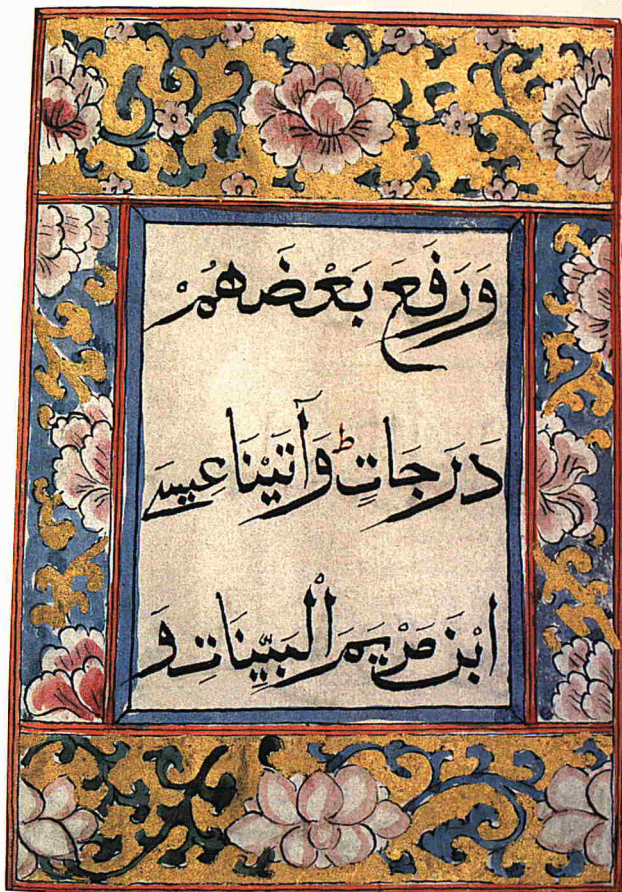 وَرَفَعَ بَعْضَهُمْ
دَرَجَاتٍ ط وَآتَيْنَا عِيسَى
ابْنَ مَرْيَمَ الْبَيِّنَاتِ وَ